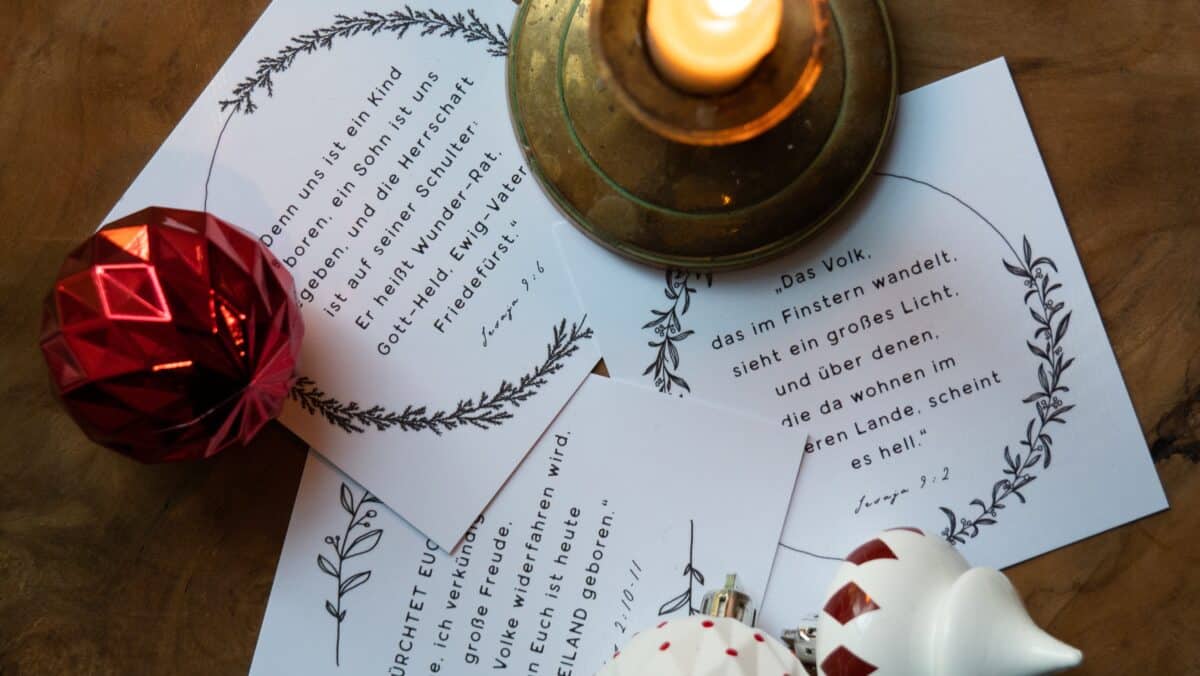 „Denn uns ist ein Kind
boren, ein Sohn ist uns
geben, und die Herrschaft
ist auf seiner Schulter;
Er heißt Wunder-Rat,
Gott-Held, Ewig-Vater
Friedefürst.“
Jesaja 9:6
„Das Volk,
das im Finstern wandelt,
sieht ein großes Licht,
und über denen,
die da wohnen im
eren Lande, scheint
es hell.“
Jesaja 9:2
ÜRCHTET EUC
e, ich verkündig
große Freude,
Volke widerfahren wird,
n Euch ist heute
EILAND geboren.“
2:10-11